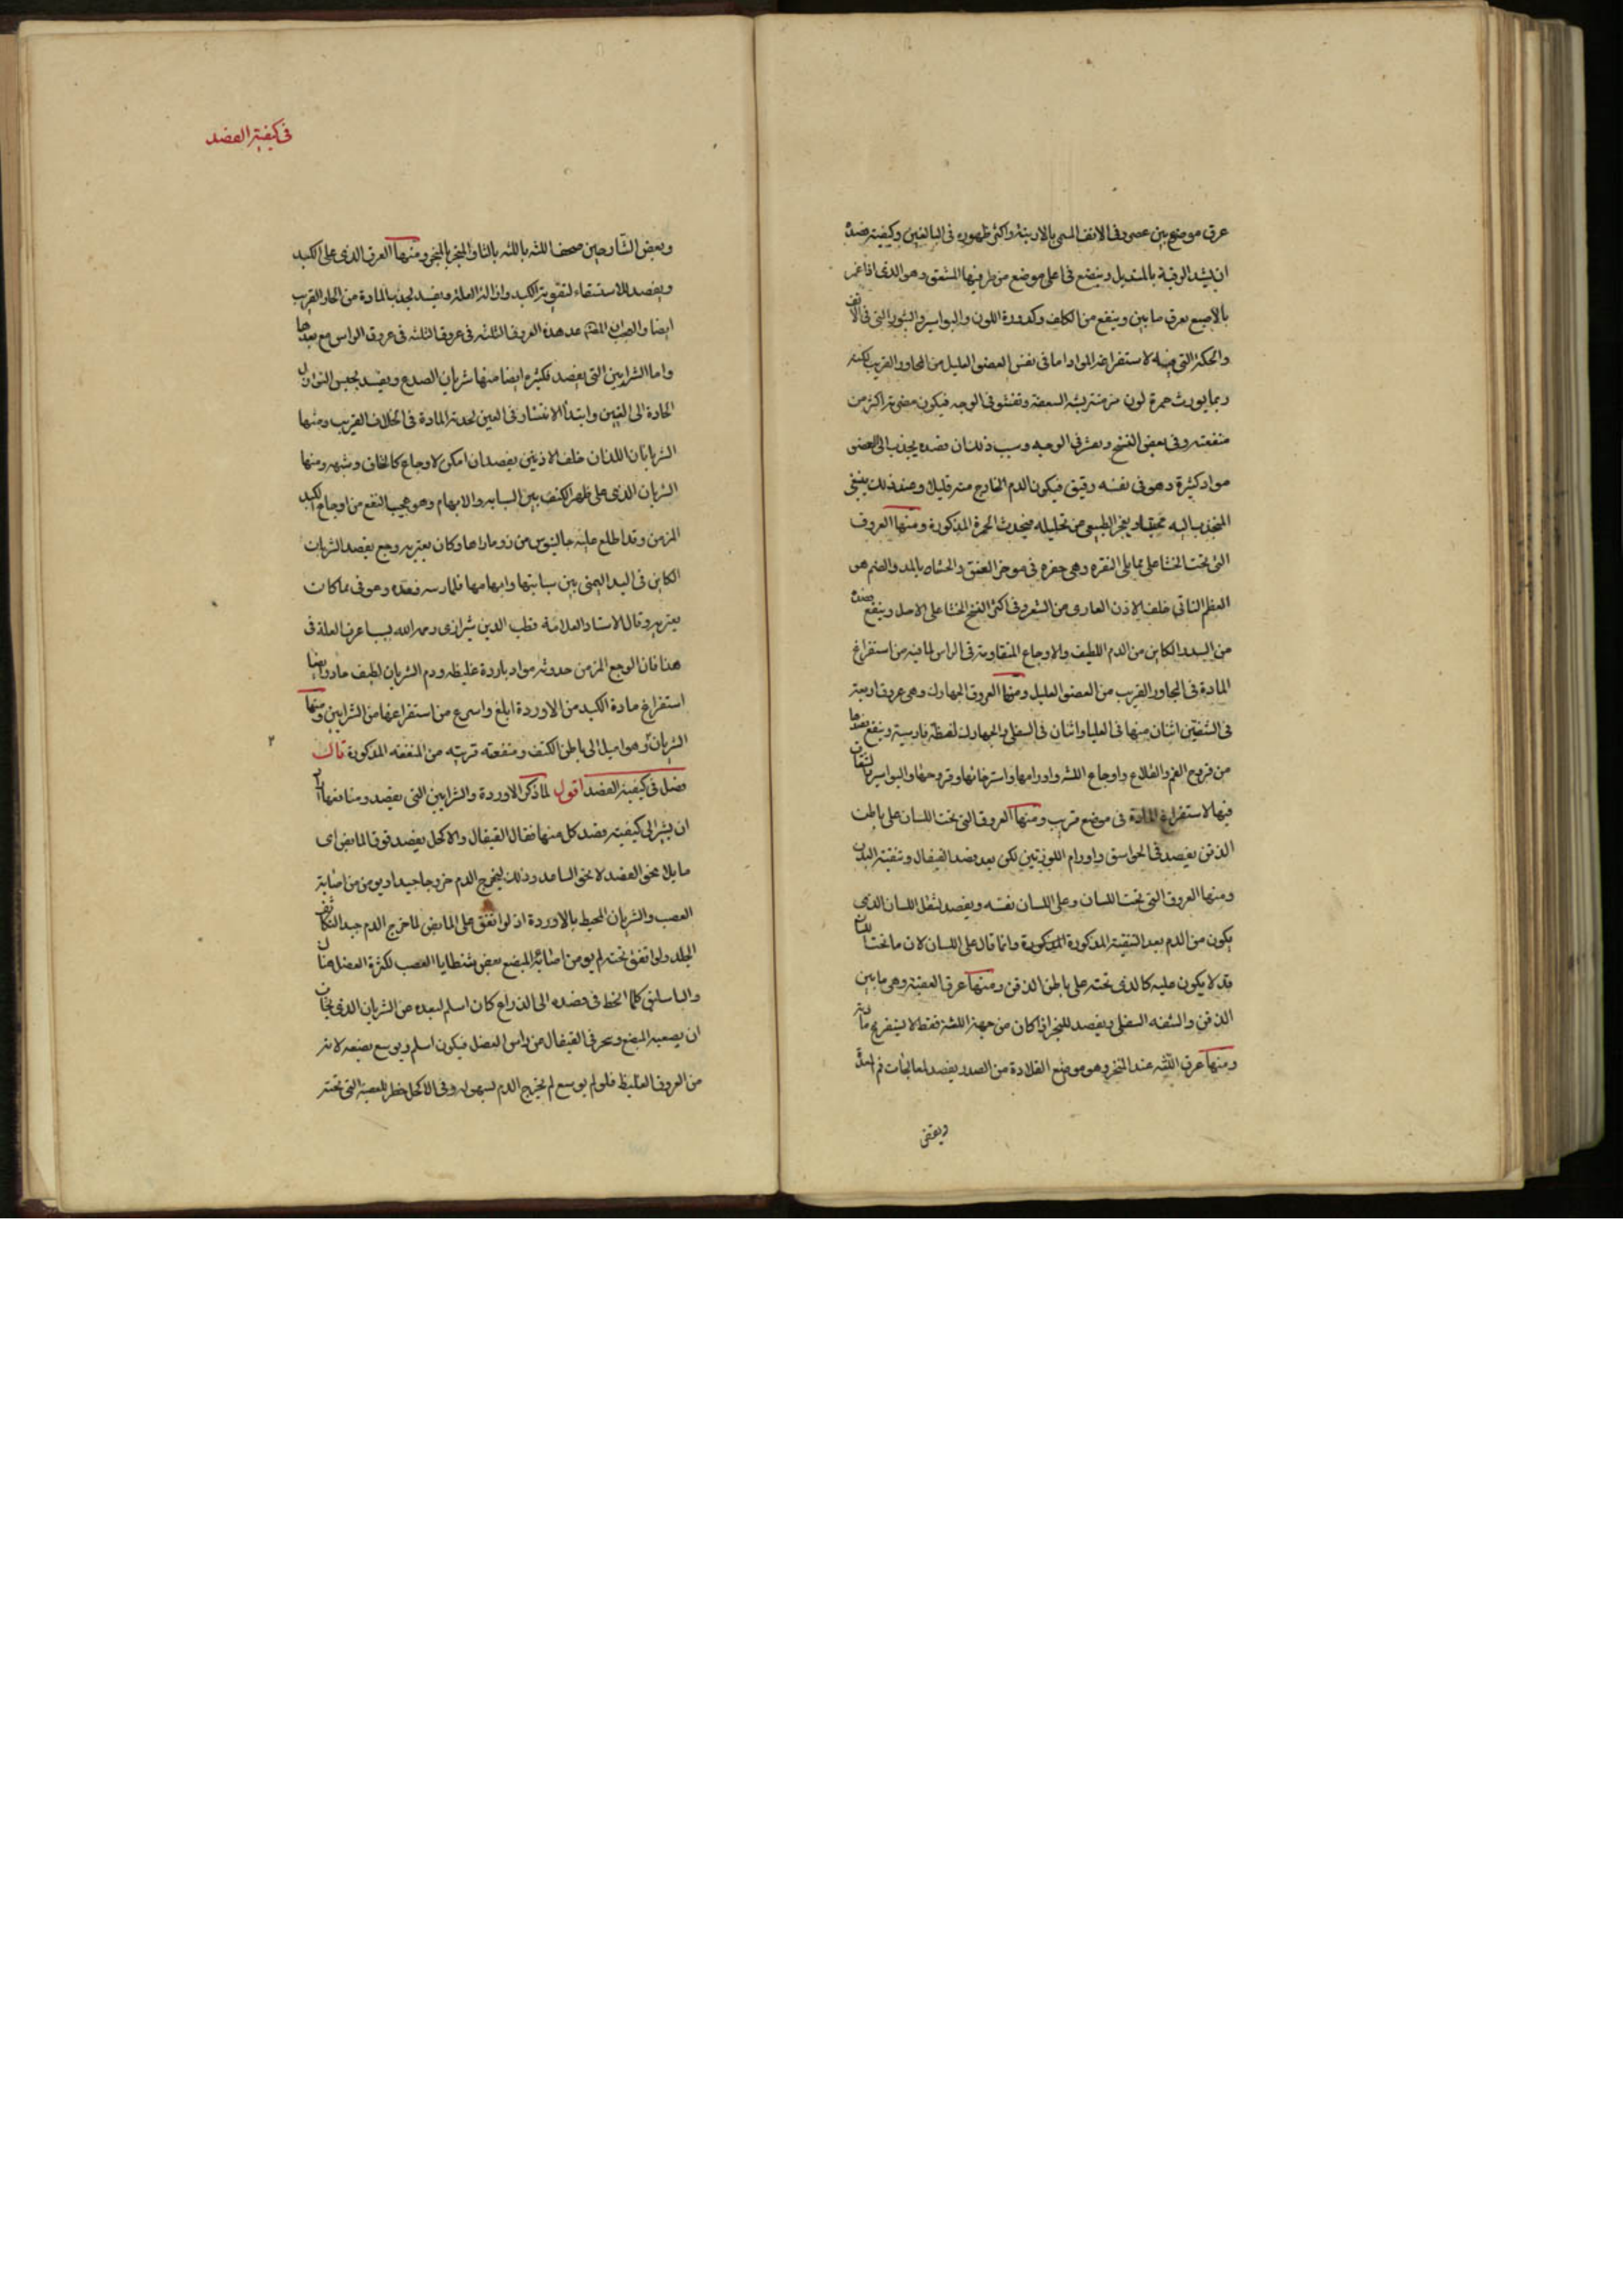 عرق موضع بين غضروفى الانف المسمى بالارنبة واكثر ظهوره فى البالغين وكيفية فصده
ان يشد الرقبة بالمنديل ويبضع فى اعلى موضع من طرفيها المشقق وهو الذى اذا غمز
بالاصبع يعرق ما بين وينفع من الكلف وكدورة اللون والبواسير والبثور التى فى الانف
والحكة التى فيه لاستفراغه المواد اما فى نفس العضو العليل من المجاور القريب لكنه
ربما يورث حمرة لون مزمنة يشبه السعفة وتفشو فى الوجه فيكون مضرته اكثر من
منفعته وفى بعض النسخ ويعرف الوجه وسبب ذلك ان فصده يجذب الى العضو
مواد كثيرة وهو فى نفسه رقيق فيكون الدم الخارج منه قليلا وعند ذلك ينبغى
المنجذب اليه ويعجز الطبيعى عن تحليله فيحدث الحمرة المذكورة ومنها العروق
التى تحت الخششا على ما يلى النقرة وهى حفرة فى موخر العنق والخششا بالمد والضم هو
العظم الناتى خلف الاذن العارى من الشعر وفى اكثر النسخ الخششا على الاصل وينفع فصده
من السدد الكاين من الدم اللطيف والاوجاع المتقاومة فى الراس لما فيه من استفراغ
المادة فى المجاور القريب من العضو العليل ومنها العروق الجهارك وهى عروق اربعة
فى الشفتين اثنان منها فى العليا واثنان فى السفلى والجهارك لفظة فارسية وينفع فصدها
من قروح الفم والقلاع واوجاع اللثة واورامها واسترخائها وقروحها والبواسير والشقاق
فيها لاستفراغ المادة فى موضع قريب ومنها العروق التى تحت اللسان على باطن
الذقن يفصد فى الخوانيق واورام اللوزتين لكن بعد فصد القيفال وتنقية البدن
ومنها العروق التى تحت اللسان وعلى اللسان نفسه ويفصد لثقل اللسان الذى
يكون من الدم بعد التنقية المذكورة المذكورة وانما قال على اللسان لان ما تحت اللسان
قد لا يكون عليه كالذى تحته على باطن الذقن ومنها عرق العنفقة وهى ما بين
الذقن والشفة السفلى ويفصد للبخر اذا كان من جهة اللثة فقط لاستفراغ مادته
ومنها عرق اللثة عند المنخر وهو موضع القلادة من الصدر يفصد لمعالجات فم المعدة
وبعض
فى كيفية الفصد
وبعض الشارحين صحف اللثة باللثة بالثاء والمنخر بالبخر ومنها العرق الذى على الكبد
ويفصد للاستسقاء لتقوية الكبد وازالة العلة ويفيد لجذب المادة من الجار القريب
ايضا والصواب عد هذه العروق الثلثة فى عروق الثلثة فى عروق الراس مع بعدها
واما الشرايين التى يفصد فكثيرة ايضا منها شريان الصدع ويفيد بحبس النوازل
الحادة الى العين وابتدا الانتشار فى العين لحدة المادة فى الخلاف القريب ومنها
الشريانان اللذان خلف الاذنين يفصدان امكن لاوجاع كالخاق وشبهه ومنها
الشريان الذى على ظهر الكتف بين السبابة والابهام وهو عجيب النفع من اوجاع الكبد
المزمن وقد اطلع عليه جالينوس من زوماراها وكان يعتريه وجع بفصد الشريان
الكاين فى اليد اليمنى بين سبابتها وابهامها فلما رسه فصده وعوفى مما كان
يعتريه وقال الاستاد العلامة قطب الدين شيرازى رحمه الله بسبب اعرف العلة فى
هذا فان الوجع المزمن حدوثه مواد باردة غليظة ودم الشريان لطيف حار وايضا
استفراغ مادة الكبد من الاوردة ابلغ واسرع من استفراغها من الشرايين ومنها
الشريان وهو اميل الى باطن الكتف ومنفعته قريبة من المنفعة المذكورة قال
فصل فى كيفية الفصد اقول لما ذكر الاوردة والشرايين التى يفصد ومنافعها اراد
ان يشير الى كيفية فصد كل منها فقال القيفال والاكحل يفصد فوق المابض اى
ما يلا نحو العضد لا نحو الساعد وذلك ليخرج الدم خروجا جيدا ويومن من اصابة
العصب والشريان المحيط بالاوردة اذ لو اتفق على المابض لما خرج الدم جيدا لتكاثف
الجلد ولو اتفق تحته لم يومن اصابة المبضع بعض شظايا العصب لكثرة العضل هناك
والباسليق كلما انحط فى فصده الى الذراع كان اسلم لبعده عن الشريان الذى يخاف
ان يصيبه المبضع ويحرف القيفال عن راس العضل فيكون اسلم ويوسع بضعه لانه
من العروق الغليظ فلو لم يوسع لم يخرج الدم بسهولة وفى الاكحل خطر للعصبة التى تحته